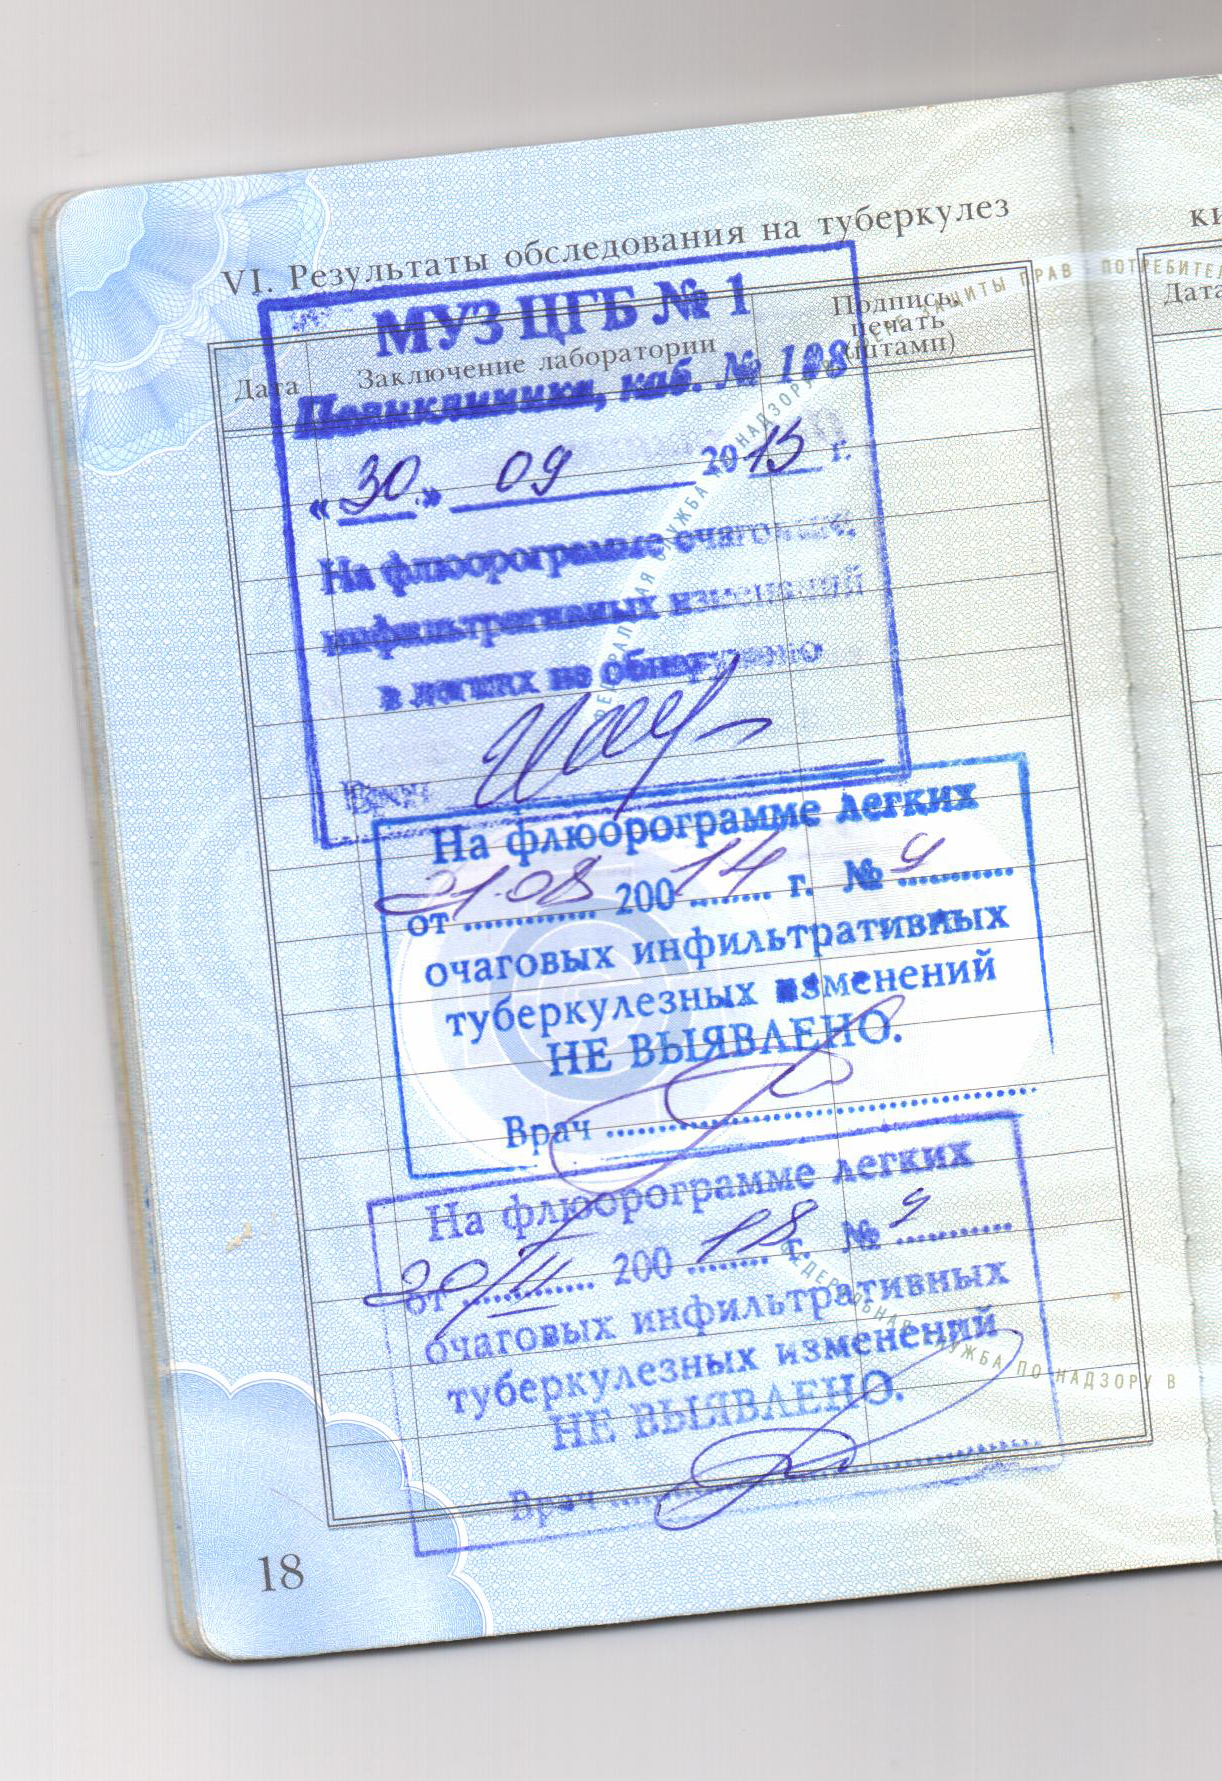 VI. Результаты обследования на туберкулез
Дата
Заключение лаборатории
Подпись,
печать
(штамп)
МУЗ ЦГБ № 1
Поликлиника, каб. № 108
«30» 09 2015 г.
На флюорограмме очаговых,
инфильтративных изменений
в легких не обнаружено
Врач
На флюорограмме легких
от 21.08 20014 г. № 9
очаговых инфильтративных
туберкулезных изменений
НЕ ВЫЯВЛЕНО.
Врач
На флюорограмме легких
от 20/II 20018 г. № 9
очаговых инфильтративных
туберкулезных изменений
НЕ ВЫЯВЛЕНО.
Врач
18
ки
Дата
ФЕДЕРАЛЬНАЯ СЛУЖБА ПО НАДЗОРУ В
ЗАЩИТЫ ПРАВ ПОТРЕБИТЕЛ
ФЕДЕРАЛЬНАЯ СЛУЖБА ПО НАДЗОРУ В